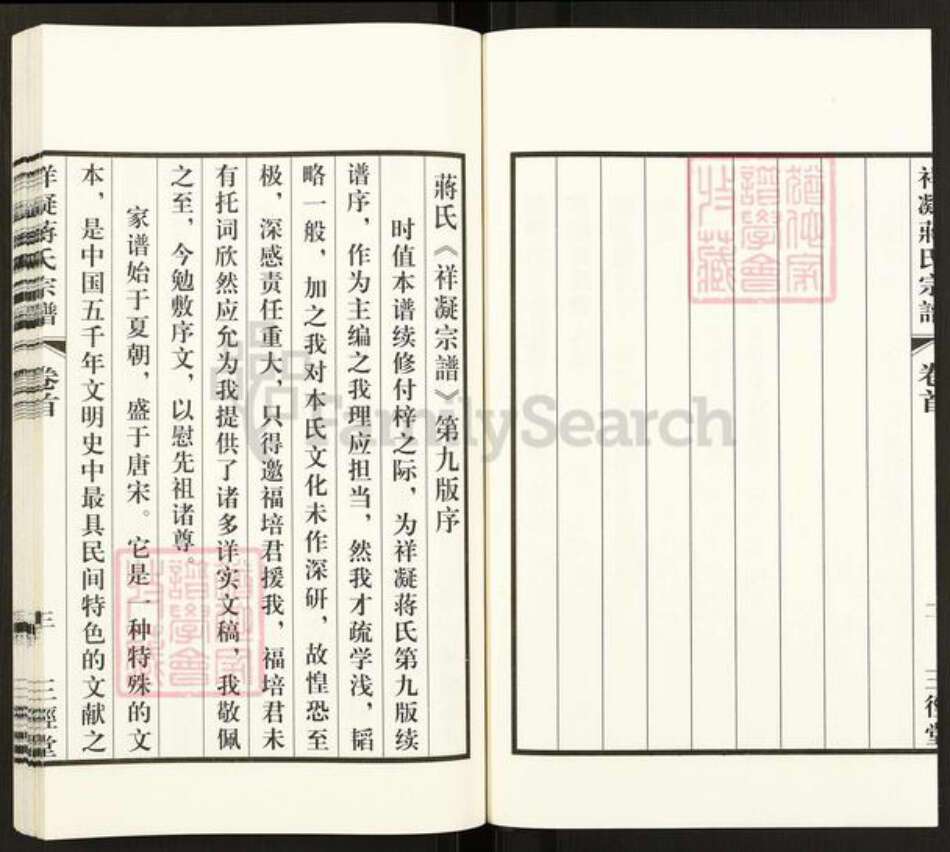 祥凝蔣氏宗譜
卷首
三徑堂
蔣氏《祥凝宗譜》第九版序
时值本谱续修付梓之际，为祥凝蒋氏第九版续
谱序，作为主编之我理应担当，然我才疏学浅，韬
略一般，加之我对本氏文化未作深研，故惶恐至
极，深感责任重大，只得邀福培君援我，福培君未
有托词欣然应允为我提供了诸多详实文稿，我敬佩
之至，今勉敷序文，以慰先祖诸尊。
家谱始于夏朝，盛于唐宋。它是一种特殊的文
本，是中国五千年文明史中最具民间特色的文献之
祥凝蒋氏宗譜
卷首
三
三徑堂
FamilySearch